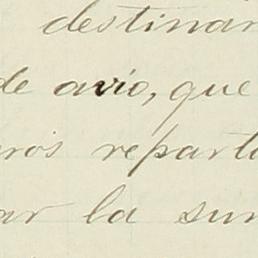 destinar
de avío, que
ros repart
ar la sum